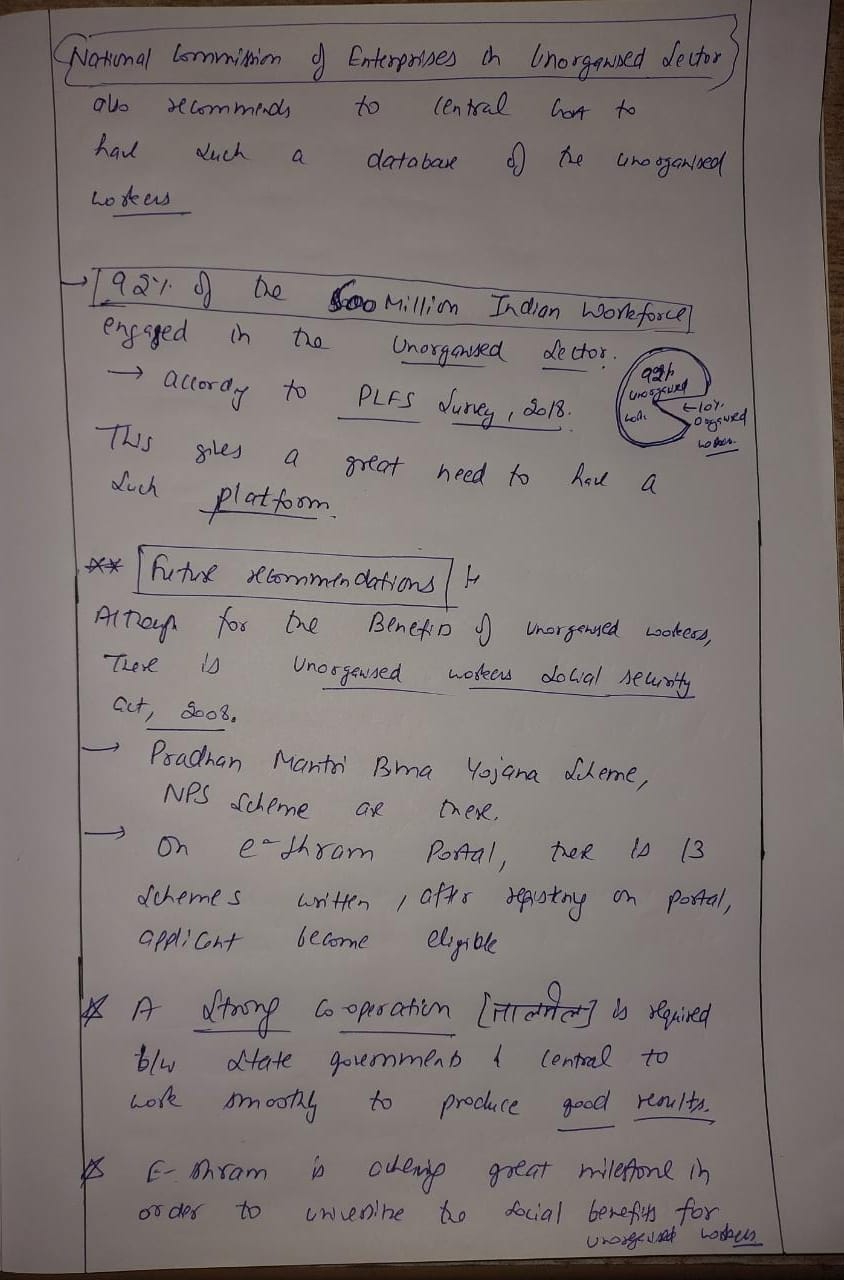 National Commission of Enterprises in Unorganised Sector
also recommends to Central Govt to
have such a database of the unorganised
workers
→ 92% of the 500 Million Indian Workforce
engaged in the Unorganised Sector.
→ accordy to PLFS Survey, 2018.
92%
unorganised
work.
←10%
Organised
workers.
This gives a great need to have a
such platform.
** Future recommendations :-
Although for the Benefits of unorganised workers,
There is Unorganised workers social security
act, 2008.
→ Pradhan Mantri Bima Yojana Scheme,
NPS Scheme are there.
→ On e-shram Portal, there is 13
schemes written, after registring on portal,
applicant become eligible
* A strong co-operation [तालमेल] is required
b/w state governments & central to
work smoothly to produce good results.
* E-shram is great milestone in
order to the social benefits for
unorganised workers